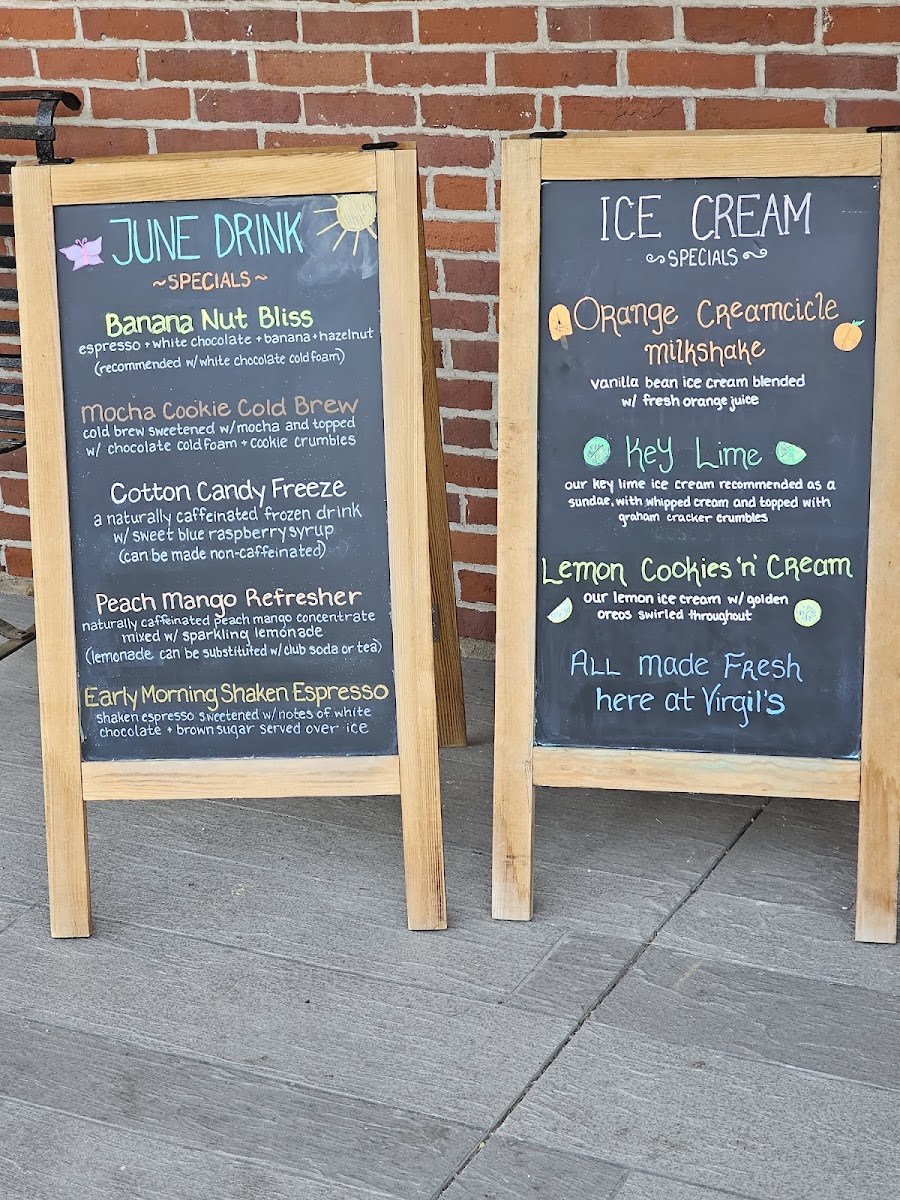 JUNE DRINK
~SPECIALS~
Banana Nut Bliss
espresso + white chocolate + banana + hazelnut
(recommended w/ white chocolate cold foam)
Mocha Cookie Cold Brew
cold brew sweetened w/ mocha and topped
w/ chocolate cold foam + cookie crumbles
Cotton Candy Freeze
a naturally caffeinated frozen drink
w/ sweet blue raspberry syrup
(can be made non-caffeinated)
Peach Mango Refresher
naturally caffeinated peach mango concentrate
mixed w/ sparkling lemonade
(lemonade can be substituted w/ club soda or tea)
Early Morning Shaken Espresso
shaken espresso sweetened w/ notes of white
chocolate + brown sugar served over ice
ICE CREAM
SPECIALS
Orange Creamcicle
milkshake
vanilla bean ice cream blended
w/ fresh orange juice
Key Lime
our key lime ice cream recommended as a
sundae, with whipped cream and topped with
graham cracker crumbles
Lemon Cookies 'n' Cream
our lemon ice cream w/ golden
oreos swirled throughout
All made Fresh
here at Virgil's